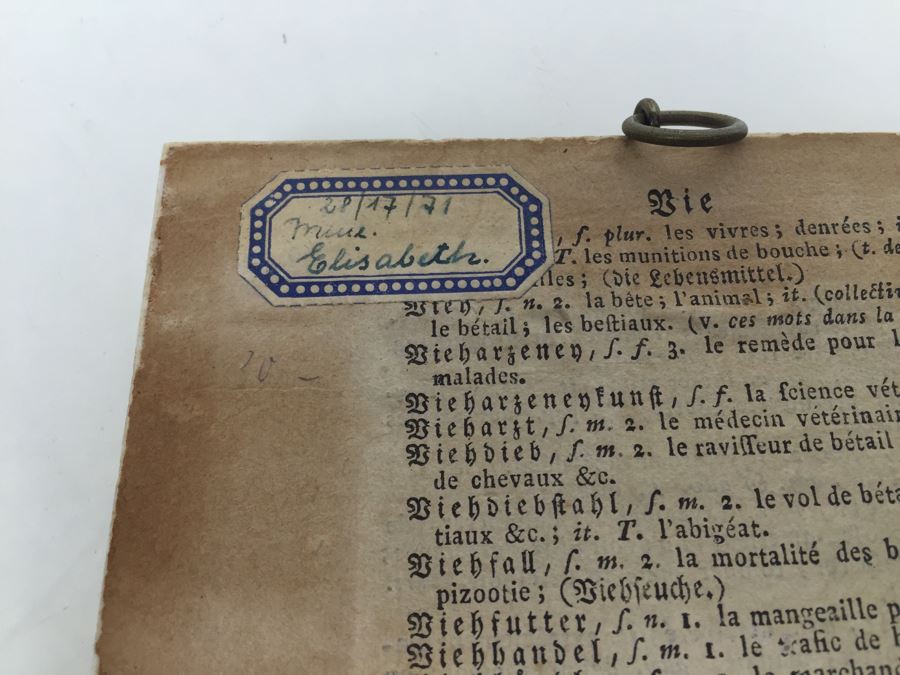 28/17/71
Mme.
Elisabeth.
Vie
, ſ. plur. les vivres; denrées; i
T. les munitions de bouche; (t. de
lles; (die Lebensmittel.)
Vieh, ſ. n. 2. la bête; l'animal; it. (collectiv
le bétail; les beſtiaux. (v. ces mots dans la
Vieharzeney, ſ. f. 3. le remède pour l
malades.
Vieharzeneykunſt, ſ. f. la ſcience vét
Vieharzt, ſ. m. 2. le médecin vétérinair
Viehdieb, ſ. m. 2. le raviſſeur de bétail
de chevaux &c.
Viehdiebſtahl, ſ. m. 2. le vol de béta
tiaux &c.; it. T. l'abigéat.
Viehfall, ſ. m. 2. la mortalité des b
pizootie; (Viehſeuche.)
Viehfutter, ſ. n. 1. la mangeaille p
Viehhandel, ſ. m. 1. le trafic de b
le marchand